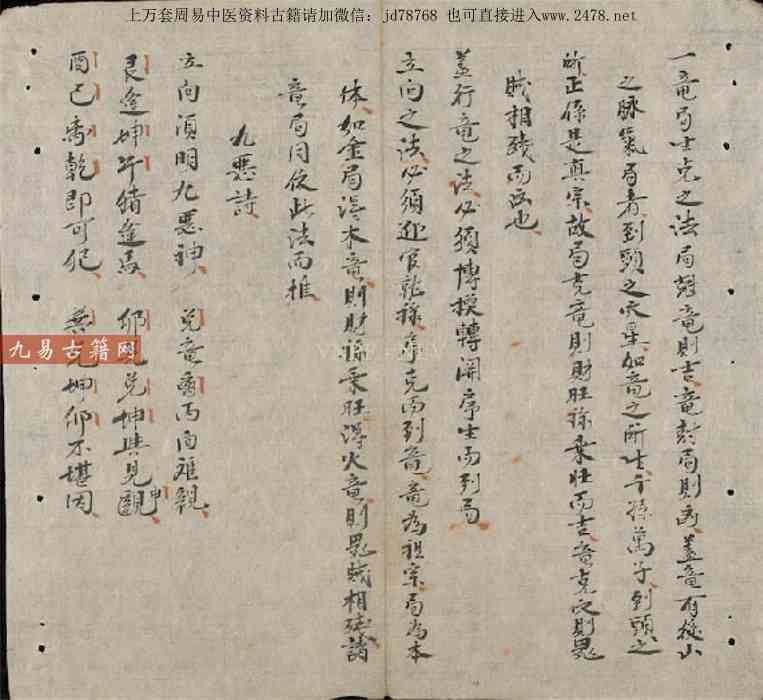 上万套周易中医资料古籍请加微信：jd78768 也可直接进入www.2478.net
一竜局生克之法局剋竜則吉竜剋局則凶盖竜有後山
之脉氣局者到頭之穴星如竜之所生千孫萬子到頭之
所正係是真宗故局克竜則財旺祿乘旺而吉竜克之則鬼
賊相殘而凶也
盖行竜之法必須博換轉開序生而到局
立向之法必須迎官就祿序克而到竜竜為祖宗局為本
体如金局得木竜則財祿乘旺得火竜則鬼賊相殘諸
竜局同依此法而推
九惡詩
立向須明九惡神 兌竜丙向難親
艮逢坤午猪逢馬 卯兌坤與見
酉巳乾即可犯 坤卯不堪因
申
九易古籍网